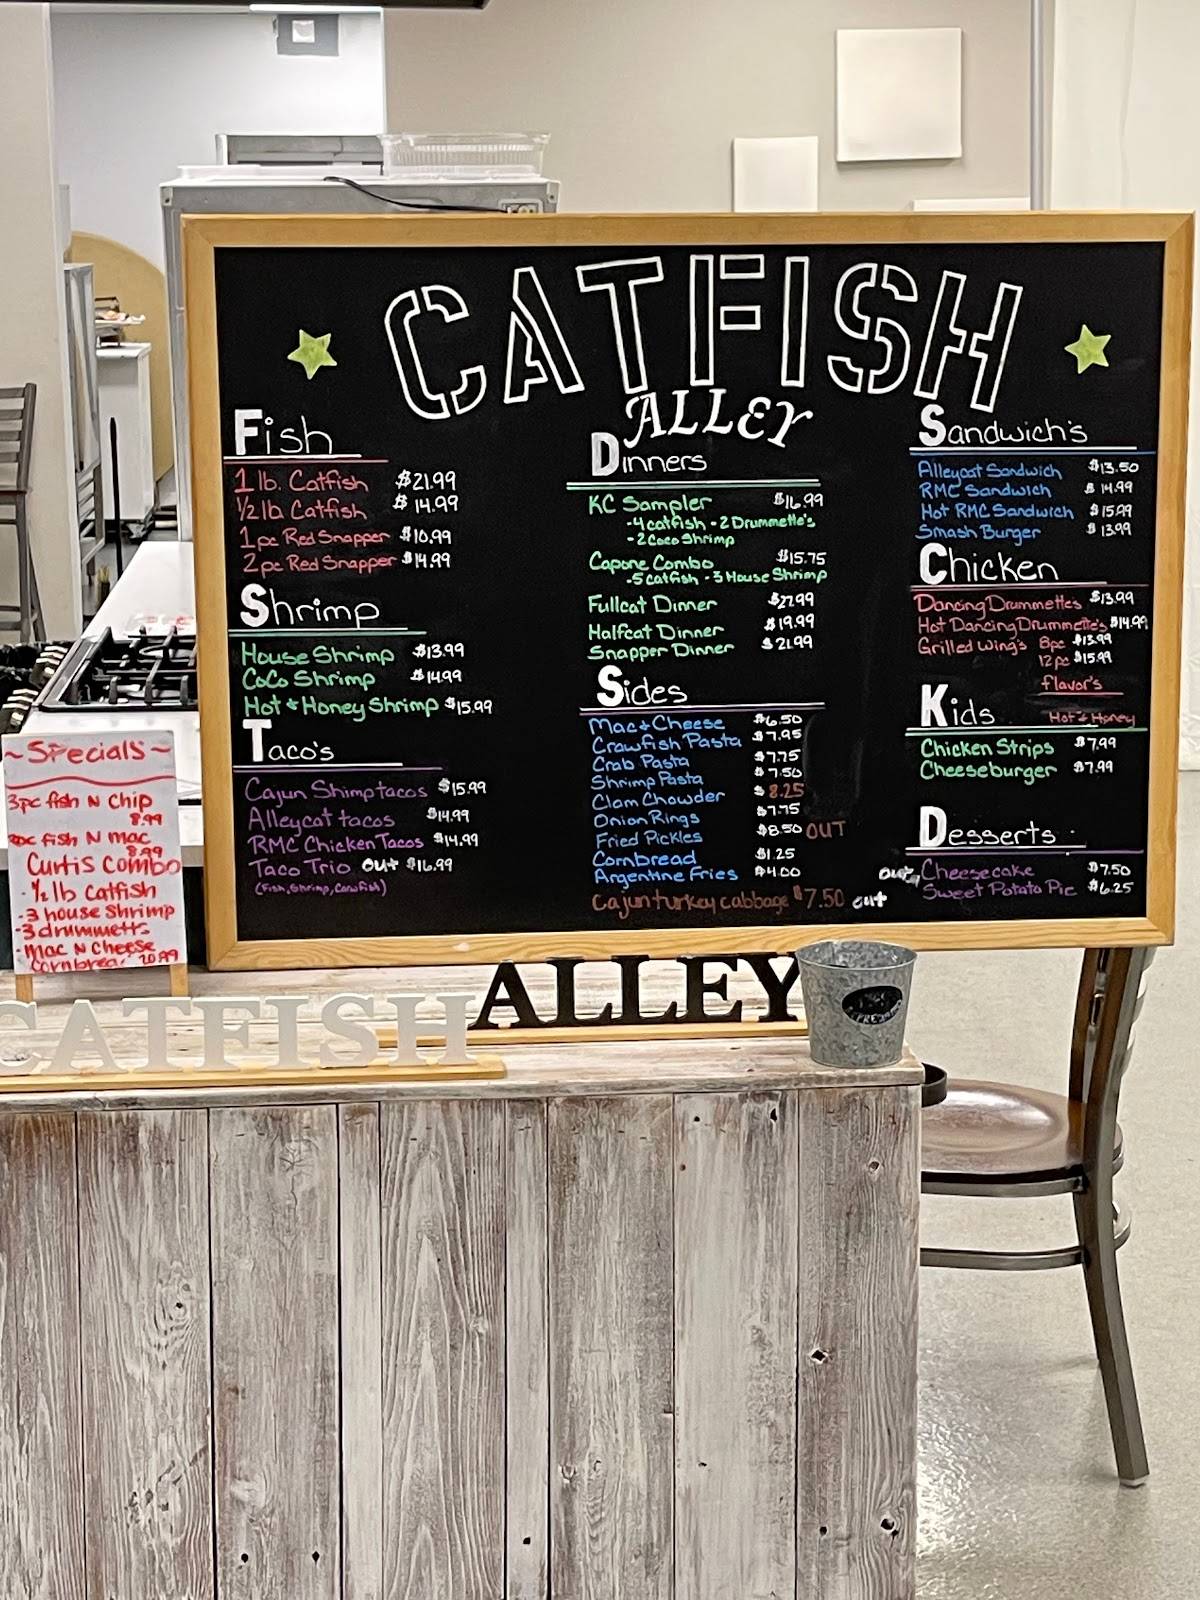 CATFISH
ALLEY
Fish
1 lb. Catfish $21.99
1/2 lb Catfish $14.99
1pc Red Snapper $10.99
2pc Red Snapper $14.99
Shrimp
House Shrimp $13.99
CoCo Shrimp $14.99
Hot & Honey Shrimp $15.99
Taco's
Cajun Shimp tacos $15.99
Alleycat tacos $14.99
RMC Chicken Tacos $14.99
Taco Trio out $16.99
(Fish, Shrimp, Crawfish)
Dinners
KC Sampler $16.99
-4 catfish -2 Drummette's
-2 Coco Shrimp
Capone Combo $15.75
-5 catfish -3 House Shrimp
Fullcat Dinner $27.99
Halfcat Dinner $19.99
Snapper Dinner $21.99
Sides
Mac & Cheese $6.50
Crawfish Pasta $7.95
Crab Pasta $7.75
Shrimp Pasta $7.50
Clam Chowder $8.25
Onion Rings $7.75
Fried Pickles $8.50 OUT
Cornbread $1.25
Argentine Fries $4.00
Cajun turkey cabbage $7.50 out
Sandwich's
Alleycat Sandwich $13.50
RMC Sandwich $14.99
Hot RMC Sandwich $15.99
Smash Burger $13.99
Chicken
Dancing Drummette's $13.99
Hot Dancing Drummette's $14.99
Grilled Wing's 8pc $13.99
12pc $15.99
flavor's
Hot & Honey
Kids
Chicken Strips $7.99
Cheeseburger $7.99
Desserts
out Cheesecake $7.50
Sweet Potato Pie $6.25
~Specials~
3pc fish N Chip
8.99
pc fish N mac
8.99
Curtis Combo
- 1/2 lb Catfish
-3 house Shrimp
-3 drummetts
-Mac N Cheese
Cornbread 20.99
CATFISH ALLEY